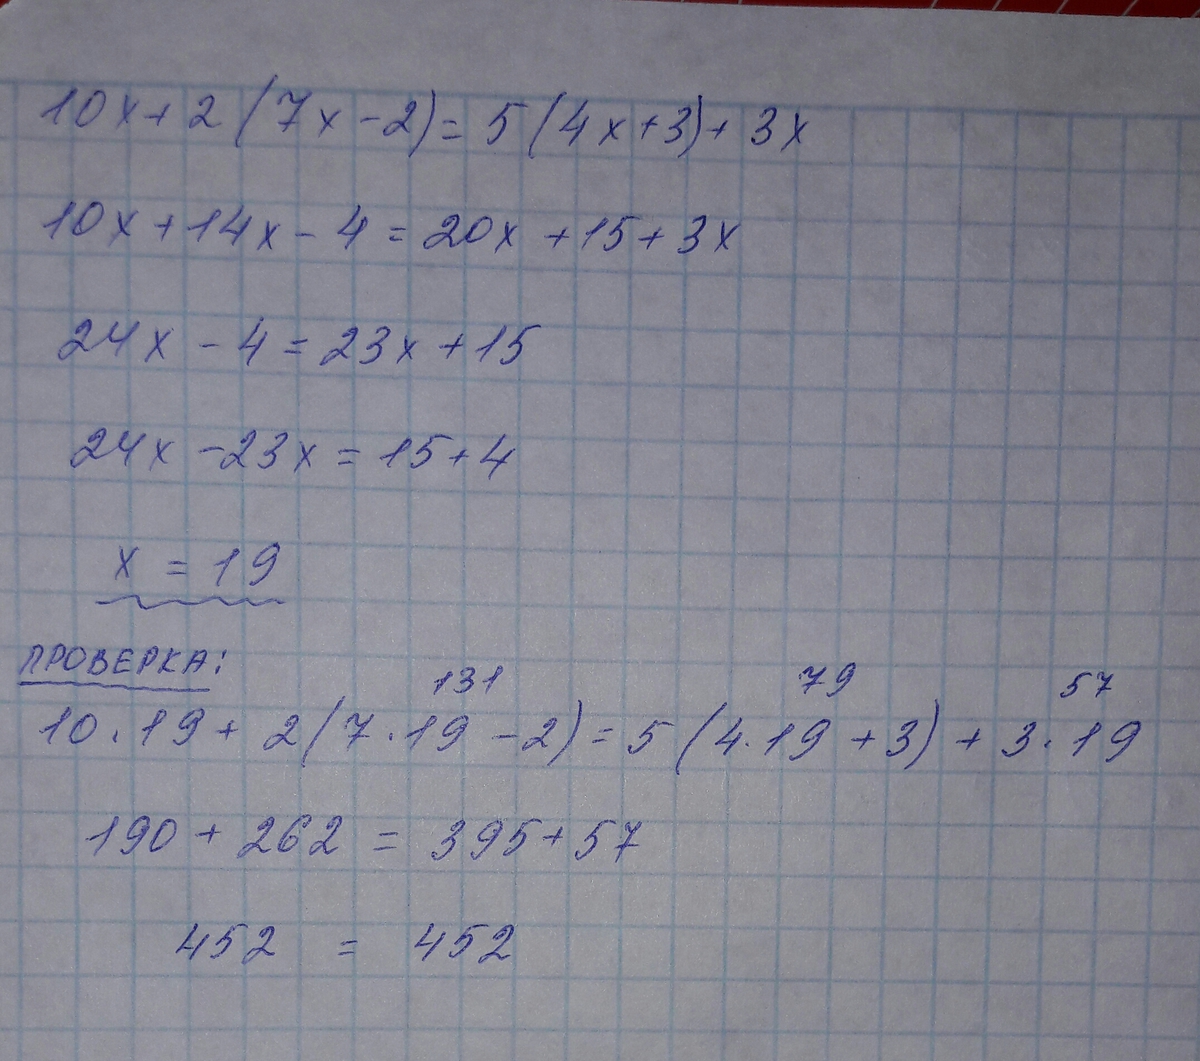 10x + 2 (7x - 2) = 5 (4x + 3) + 3x
10x + 14x - 4 = 20x + 15 + 3x
24x - 4 = 23x + 15
24x - 23x = 15 + 4
x = 19
ПРОВЕРКА:
131 79 57
10 · 19 + 2 (7 · 19 - 2) = 5 (4 · 19 + 3) + 3 · 19
190 + 262 = 395 + 57
452 = 452